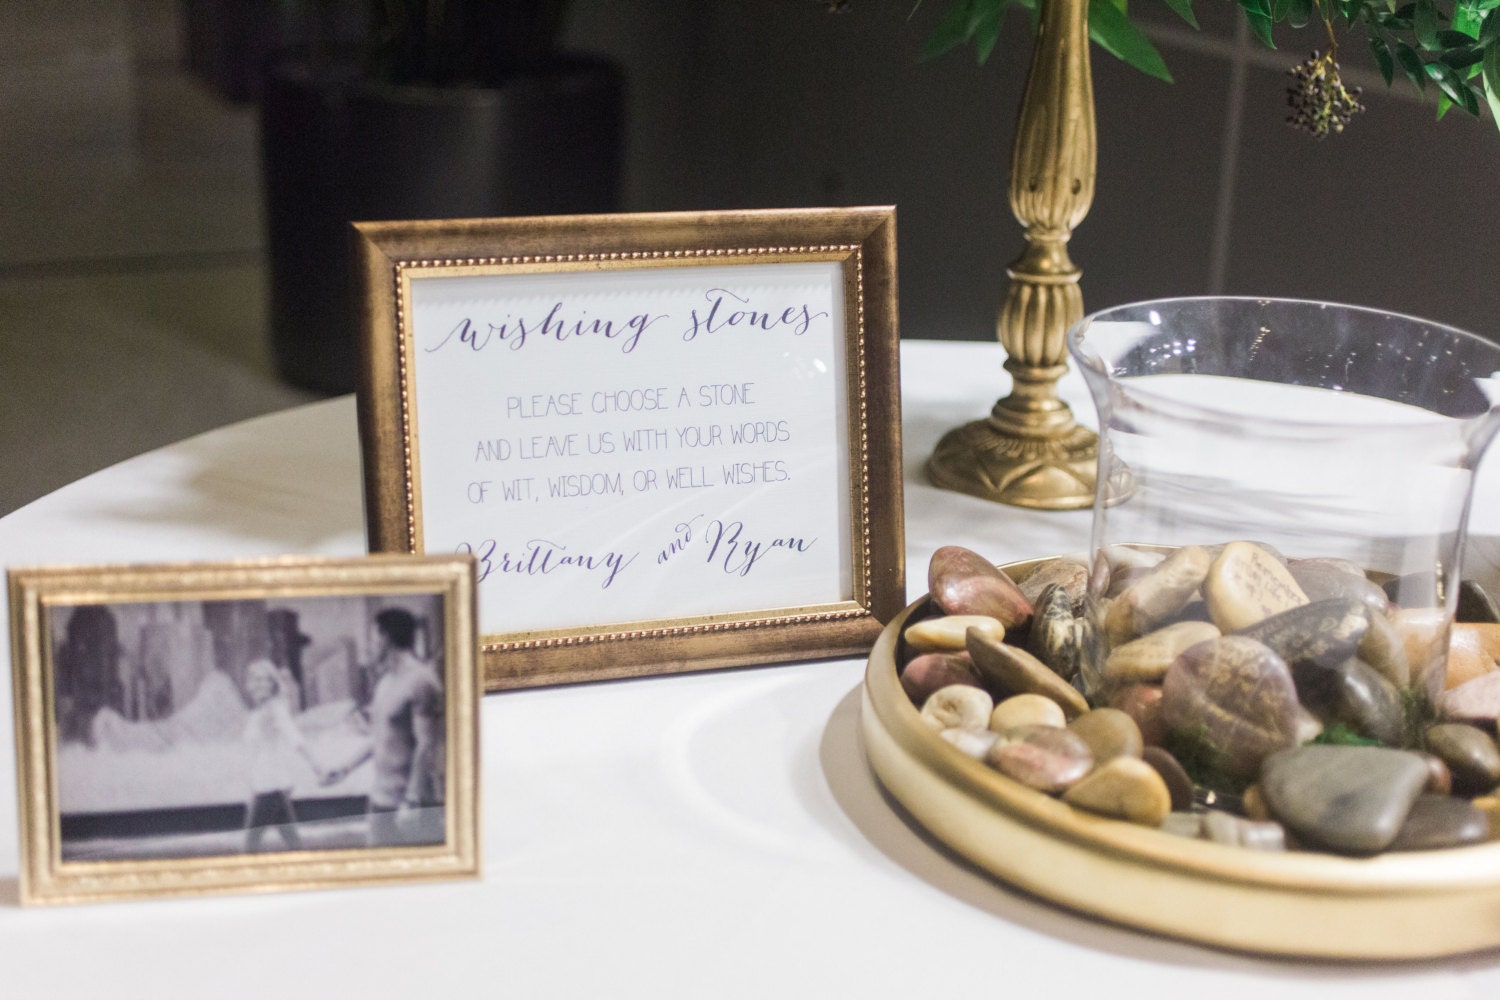 wishing stones
PLEASE CHOOSE A STONE
AND LEAVE US WITH YOUR WORDS
OF WIT, WISDOM, OR WELL WISHES.
Brittany and Ryan